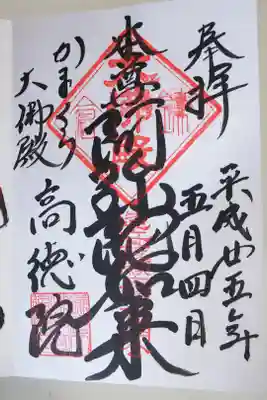 奉拝
平成廿五年
五月四日
本尊阿弥陀如来
かまくら
大佛殿
高徳院